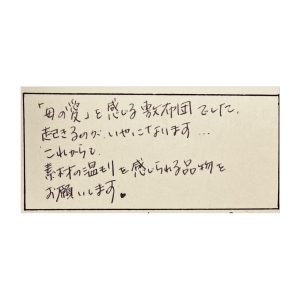 「母の愛」を感じる敷布団でした。
起きるのが、いやになります…
これからも、
素材の温もりを感じられる品物を
お願いします。